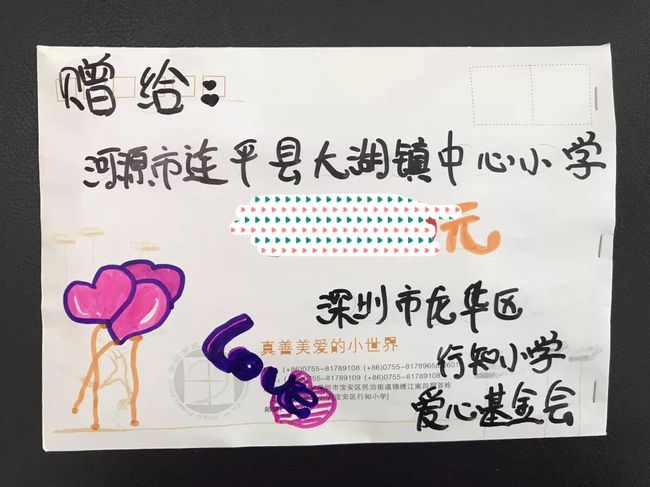 赠给:
河源市连平县大湖镇中心小学
元
深圳市龙华区
行知小学
爱心基金会
Love
真善美爱的小世界
(+86)0755-81789108 (+86)0755-8178965
(+86)0755-81789109
市宝安区民治街道锦绣江南四期首栋
宝安区行知小学]